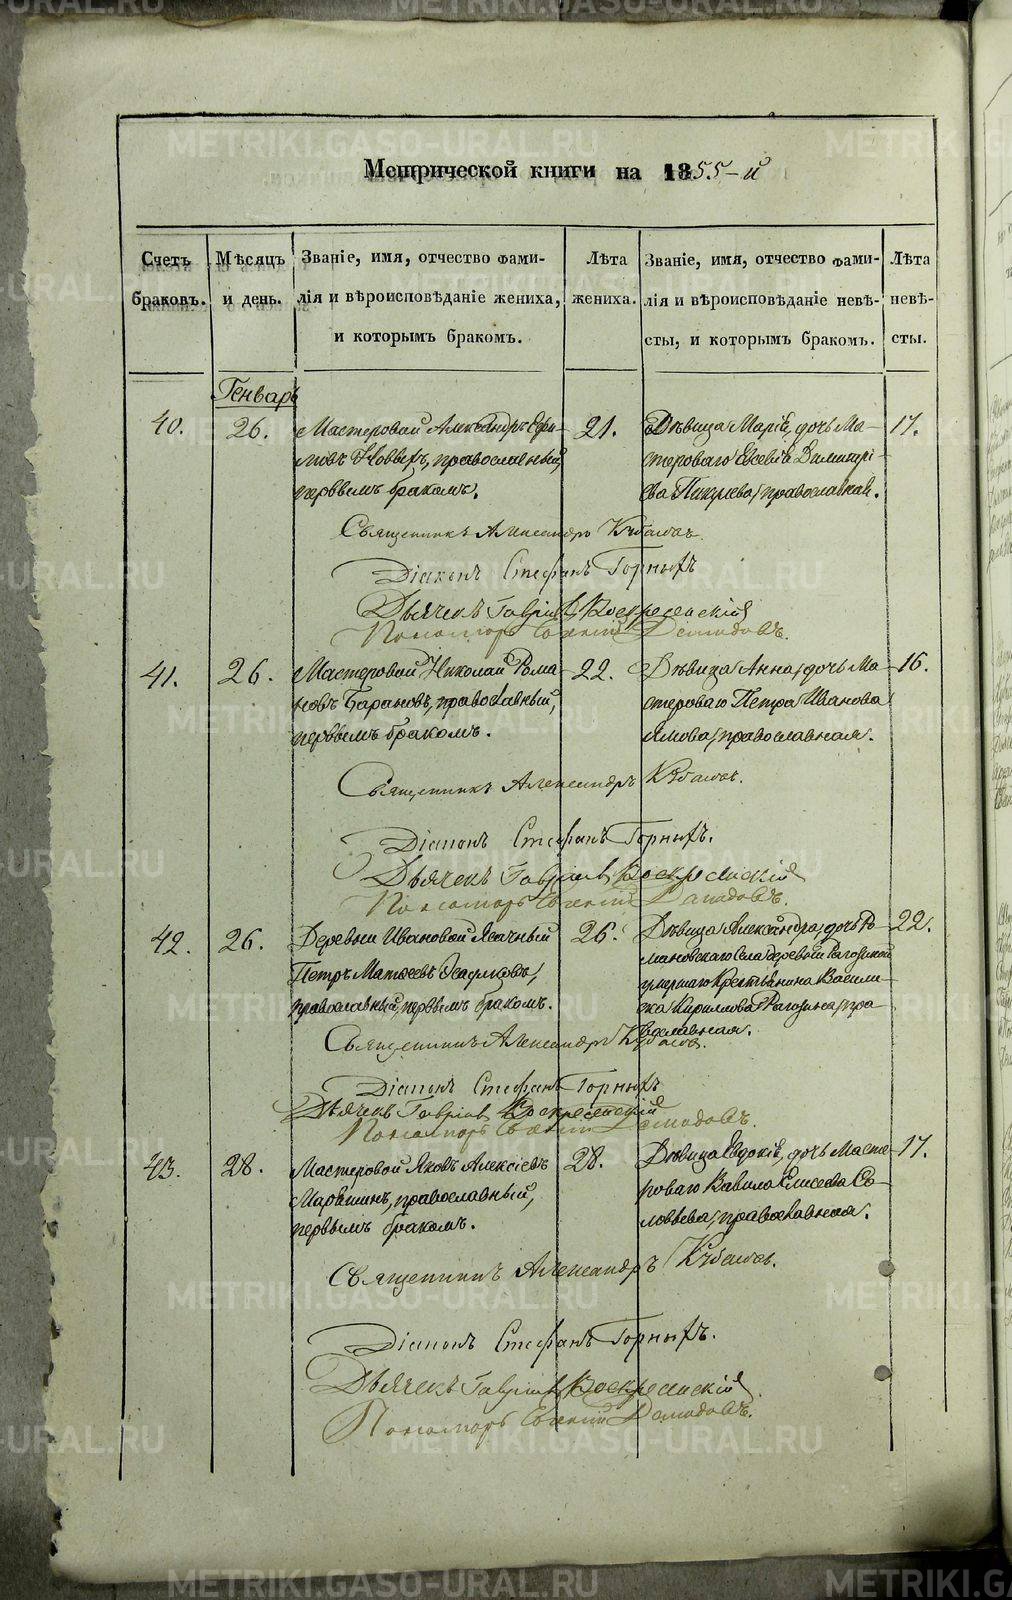 METRIKI.GASO-URAL.RU
Метрической книги на 1855-й
Счетъ браковъ.
Мѣсяцъ и день.
Званіе, имя, отчество фами-
лія и вѣроисповѣданіе жениха,
и которымъ бракомъ.
Лѣта жениха.
Званіе, имя, отчество фами-
лія и вѣроисповѣданіе невѣ-
сты, и которымъ бракомъ.
Лѣта невѣ-
сты.
Генварь
40.
26.
Мастеровой Александръ Ефи-
мовъ, православный,
первымъ бракомъ.
21.
Дѣвица Марія, дочь Ма-
стероваго Евсевія Димитрі-
ева, православная.
17.
Священникъ Александръ
Діаконъ Стефанъ Горныхъ
Дьячекъ Гавріилъ Воскресенскій
Пономарь Евгеній Демидовъ.
41.
26.
Мастеровой Николай Рома-
новъ Барановъ, православный,
первымъ бракомъ.
22.
Дѣвица Анна, дочь Ма-
стероваго Петра Иванова
православная.
16.
Священникъ Александръ
Діаконъ Стефанъ Горныхъ.
Дьячекъ Гавріилъ Воскресенскій
Пономарь Евгеній Демидовъ.
42.
26.
Деревни Ивановой Ясачный
Петръ Матѳеевъ
православный, первымъ бракомъ.
26.
Дѣвица Александра, дочь Ро-
мановскаго Села деревни Рагозиной
умершаго Крестьянина Василь-
Кирилова Рагозина, пра-
вославная.
22.
Священникъ Александръ
Діаконъ Стефанъ Горныхъ
Дьячекъ Гавріилъ Воскресенскій
Пономарь Евгеній Демидовъ.
43.
28.
Мастеровой Яковъ Алексіевъ
православный,
первымъ бракомъ.
28.
Дѣвица Евдокія, дочь Масте-
роваго Вавила Елисеева Со-
ловьева, православная.
17.
Священникъ Александръ
Діаконъ Стефанъ Горныхъ.
Дьячекъ Гавріилъ Воскресенскій
Пономарь Евгеній Демидовъ.